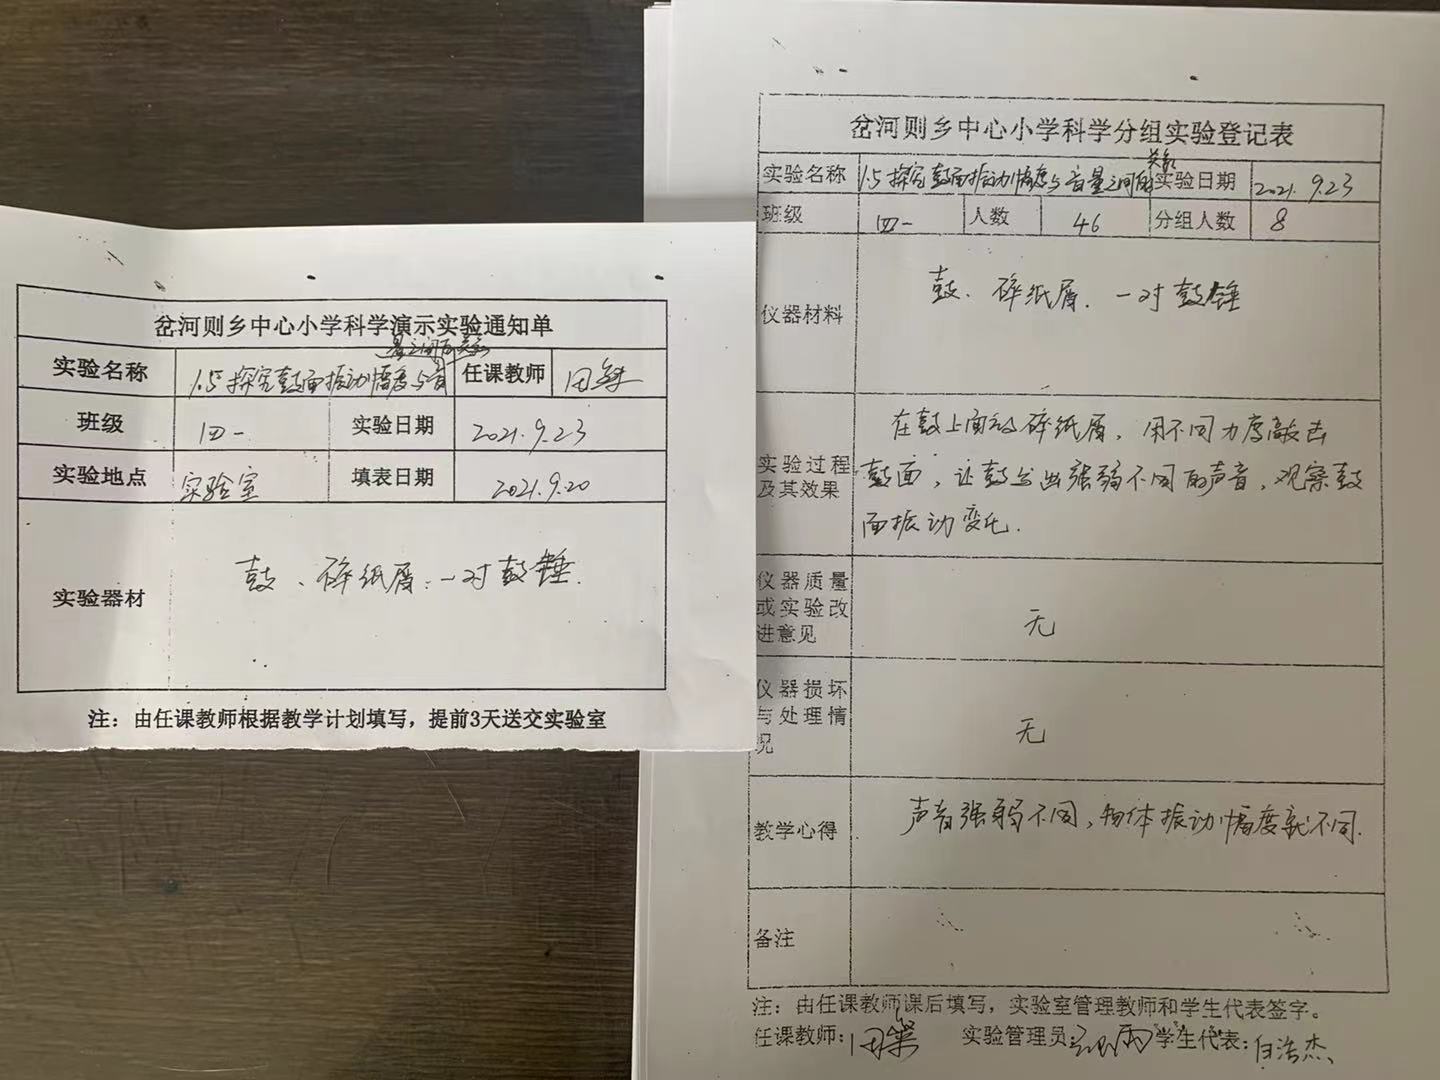 岔河则乡中心小学科学演示实验通知单
实验名称 1.5探究鼓面振动幅度与音量之间的关系 任课教师 田
班级 四一 实验日期 2021.9.23
实验地点 实验室 填表日期 2021.9.20
实验器材 鼓、碎纸屑、一对鼓锤.
注：由任课教师根据教学计划填写，提前3天送交实验室
岔河则乡中心小学科学分组实验登记表
实验名称 1.5探究鼓面振动幅度与音量之间的关系 实验日期 2021.9.23
班级 四一 人数 46 分组人数 8
仪器材料 鼓、碎纸屑、一对鼓锤
实验过程
及其效果
在鼓上面放碎纸屑，用不同力度敲击
鼓面，让鼓发出强弱不同的声音，观察鼓
面振动变化.
仪器质量
或实验改
进意见
无
仪器损坏
与处理情
况
无
教学心得 声音强弱不同，物体振动幅度就不同.
备注
注：由任课教师课后填写，实验室管理教师和学生代表签字。
任课教师：田 实验管理员： 学生代表：白浩杰